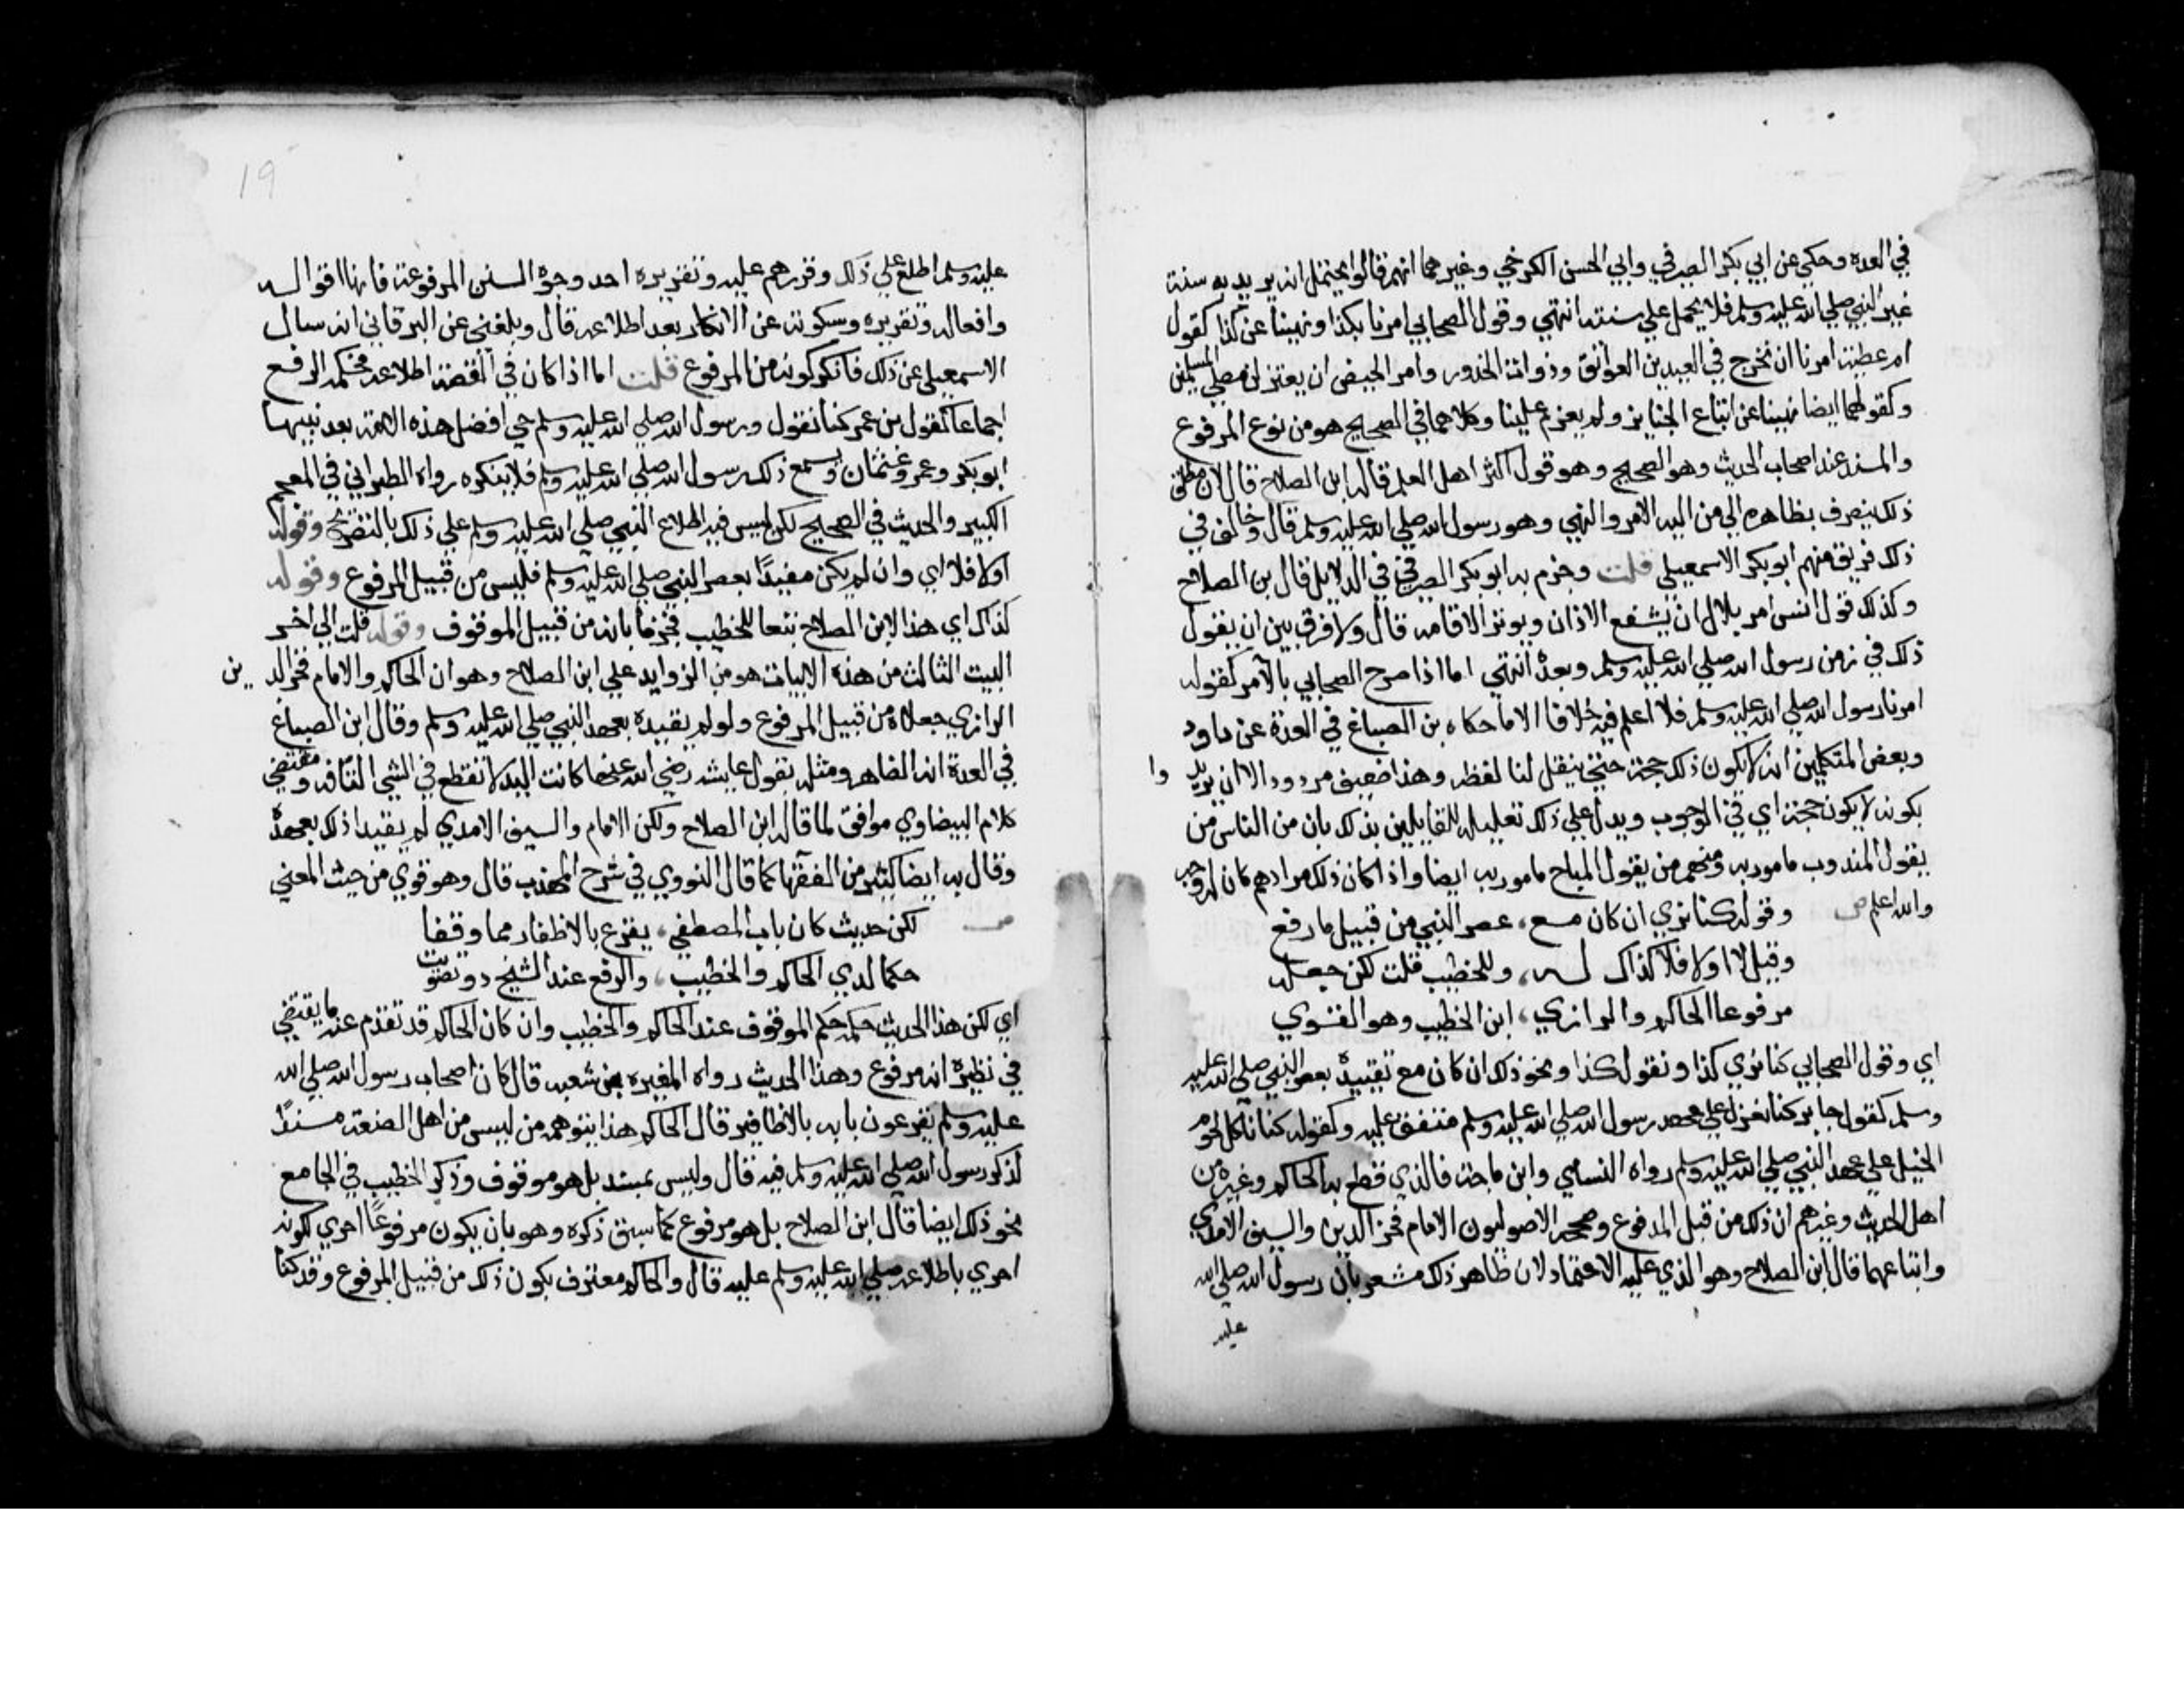 في العدة وحكي عن ابي بكر الصيرفي وابي الحسن الكرخي وغيرهما انهم قالوا يحتمل ان يريد به سنة
غير النبي صلي الله عليه وسلم فلا يحمل علي سنته انتهي وقول الصحابي امرنا بكذا ونهينا عن كذا كقول
ام عطية امرنا ان نخرج في العيدين العواتق وذوات الخدور وامر الحيض ان يعتزلن مصلي المسلمين
وكقولها ايضا نهينا عن اتباع الجنايز ولم يعزم علينا وكلاهما في الصحيح هو من نوع المرفوع
والمسند عند اصحاب الحديث وهو الصحيح وهو قول اكثر اهل العلم قاله ابن الصلاح قال لان مطلق
ذلك ينصرف بظاهره الي من اليه الامر والنهي وهو رسول الله صلي الله عليه وسلم قال وخالف في
ذلك فريق منهم ابو بكر الاسمعيلي قلت وجزم به ابو بكر الصيرفي في الدلايل قال بن الصلاح
وكذلك قول انس امر بلال ان يشفع الاذان ويوتر الاقامه قال ولا فرق بين ان يقول
ذلك في زمن رسول الله صلي الله عليه وسلم وبعده انتهي اما اذا صرح الصحابي بالامر كقوله
امرنا رسول الله صلي الله عليه وسلم فلا اعلم فيه خلافا الا ما حكاه بن الصباغ في العدة عن داود
وبعض المتكلمين انه لا يكون ذلك حجة حتي ينقل لنا لفظه وهذا ضعيف مردود الا ان يريدوا
بكونه لا يكون حجة اي في الوجوب ويدل علي ذلك تعليله للقايلين بذلك بان من الناس من
يقول المندوب مامور به ومنهم من يقول المباح مامور به ايضا واذا كان ذلك مرادهم كان له وجه
والله اعلم ص وقوله كنا نري ان كان مع، عصر النبي من قبيل ما رفع
وقيل لا او لا فلا كذاك له، وللخطيب قلت لكن جعله
مرفوعا الحاكم والرازي، ابن الخطيب وهو القوي
اي وقول الصحابي كنا نري كذا ونقول كذا ونحو ذلك ان كان مع تقييده بعصر النبي صلي الله عليه
وسلم كقول جابر كنا نعزل علي عهد رسول الله صلي الله عليه وسلم متفق عليه وكقوله كنا ناكل لحوم
الخيل علي عهد النبي صلي الله عليه وسلم رواه النسايي وابن ماجة فالذي قطع به الحاكم وغيره من
اهل الحديث وغيرهم ان ذلك من قبل المرفوع وصححه الاصوليون الامام فخر الدين والسيف الامدي
واتباعهما قال ابن الصلاح وهو الذي عليه الاعتماد لان ظاهر ذلك مشعر بان رسول الله صلي الله
عليه
19
عليه وسلم اطلع علي ذلك وقررهم عليه وتقريره احد وجوه السنن المرفوعة فانها اقواله
وافعاله وتقريره وسكوته عن الانكار بعد اطلاعه قال وبلغني عن البرقاني انه سال
الاسمعيلي عن ذلك فانكر كونه من المرفوع قلت اما اذا كان في القصة اطلاعه فحكمه الرفع
اجماعا كقول بن عمر كنا نقول ورسول الله صلي الله عليه وسلم حي افضل هذه الامة بعد نبيها
ابو بكر وعمر وعثمان ويسمع ذلك رسول الله صلي الله عليه وسلم فلا ينكره رواه الطبراني في المعجم
الكبير والحديث في الصحيح لكن ليس فيه اطلاع النبي صلي الله عليه وسلم علي ذلك بالتصريح وقوله
او لا فلا اي وان لم يكن مقيدًا بعصر النبي صلي الله عليه وسلم فليس من قبيل المرفوع وقوله
كذاك اي هذا لابن الصلاح تبعا للخطيب فجزما بانه من قبيل الموقوف وقوله قلت الي اخر
البيت الثالث من هذه الابيات هو من الزوايد علي ابن الصلاح وهو ان الحاكم والامام فخر الدين
الرازي جعلاه من قبيل المرفوع ولو لم يقيده بعهد النبي صلي الله عليه وسلم وقال ابن الصباغ
في العدة انه الظاهر ومثله بقول عايشه رضي الله عنها كانت اليد لا تقطع في الشي التافه ومقتضي
كلام البيضاوي موافق لما قاله ابن الصلاح ولكن الامام والسيف الامدي لم يقيدا ذلك بعهده
وقال به ايضا كثير من الفقها كما قال النووي في شرح المهذب قال وهو قوي من حيث المعني
ص لكن حديث كان باب المصطفي، يقرع بالاظفار مما وقفا
حكما لدي الحاكم والخطيب، والرفع عند الشيخ ذو تصويب
اي لكن هذا الحديث حكمه حكم الموقوف عند الحاكم والخطيب وان كان الحاكم قد تقدم عنه ما يقتضي
في نظيره انه مرفوع وهذا الحديث رواه المغيره بن شعبه قال كان اصحاب رسول الله صلي الله
عليه وسلم يقرعون بابه بالاظافير قال الحاكم هذا يتوهمه من ليس من اهل الصنعة مسندًا
لذكر رسول الله صلي الله عليه وسلم فيه قال وليس بمسند بل هو موقوف وذكر الخطيب في الجامع
نحو ذلك ايضا قال ابن الصلاح بل هو مرفوع كما سبق ذكره وهو بان يكون مرفوعًا احري لكونه
احري باطلاعه صلي الله عليه وسلم عليه قال والحاكم معترف بكون ذلك من قبيل المرفوع وقد كنا